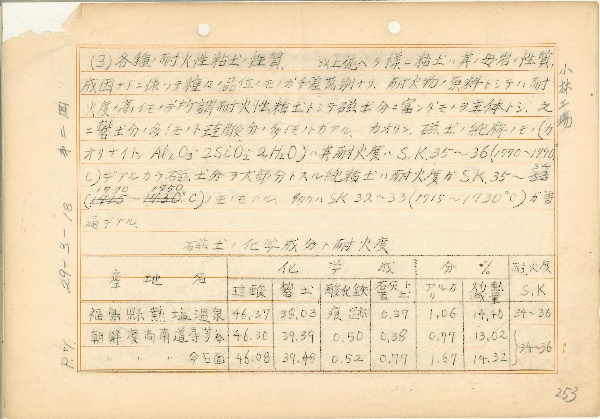 (3) 各種ノ耐火性粘土ノ性質. 以上述ベタ様ニ粘土ハ其ノ母岩ノ性質,
成因ナドニ依ツテ種々ノ品位ノモノガ千差萬別ナリ. 耐火物ノ原料トシテハ耐
火度ノ高イモノデ所謂耐火性粘土トシテ磁土分ニ富ンダモノヲ主体トシ, 之
ニ礬土分ノ多イモノト珪酸分ノ多イモノトガアル. カオリン, 磁土ノ純粋ノモノ(カ
オリナイト, Al₂O₃·2SiO₂·2H₂O)ハ其耐火度ハ S.K. 35~36 (1770~1790°
C)デアルカラ磁土分ヲ大部分トスル純粘土ハ耐火度ガ S.K. 35~
(1770~1750°C)ノモノモアル. SK 32~33 (1715~1730°C) ガ普
通デアル.
磁土ノ化学成分ト耐火度
産地名 化学成分 % 耐火度
珪酸 礬土 酸化鉄 アルカリ 灼熱減量 S.K
福島縣熱塩温泉 46.37 38.03 痕跡 0.37 1.06 14.40 34~36
朝鮮慶尚南道 46.30 39.39 0.50 0.38 0.97 13.02 34~36
〃 〃 〃 46.08 39.48 0.52 0.77 1.67 14.32
小林工場
29-3-18
253